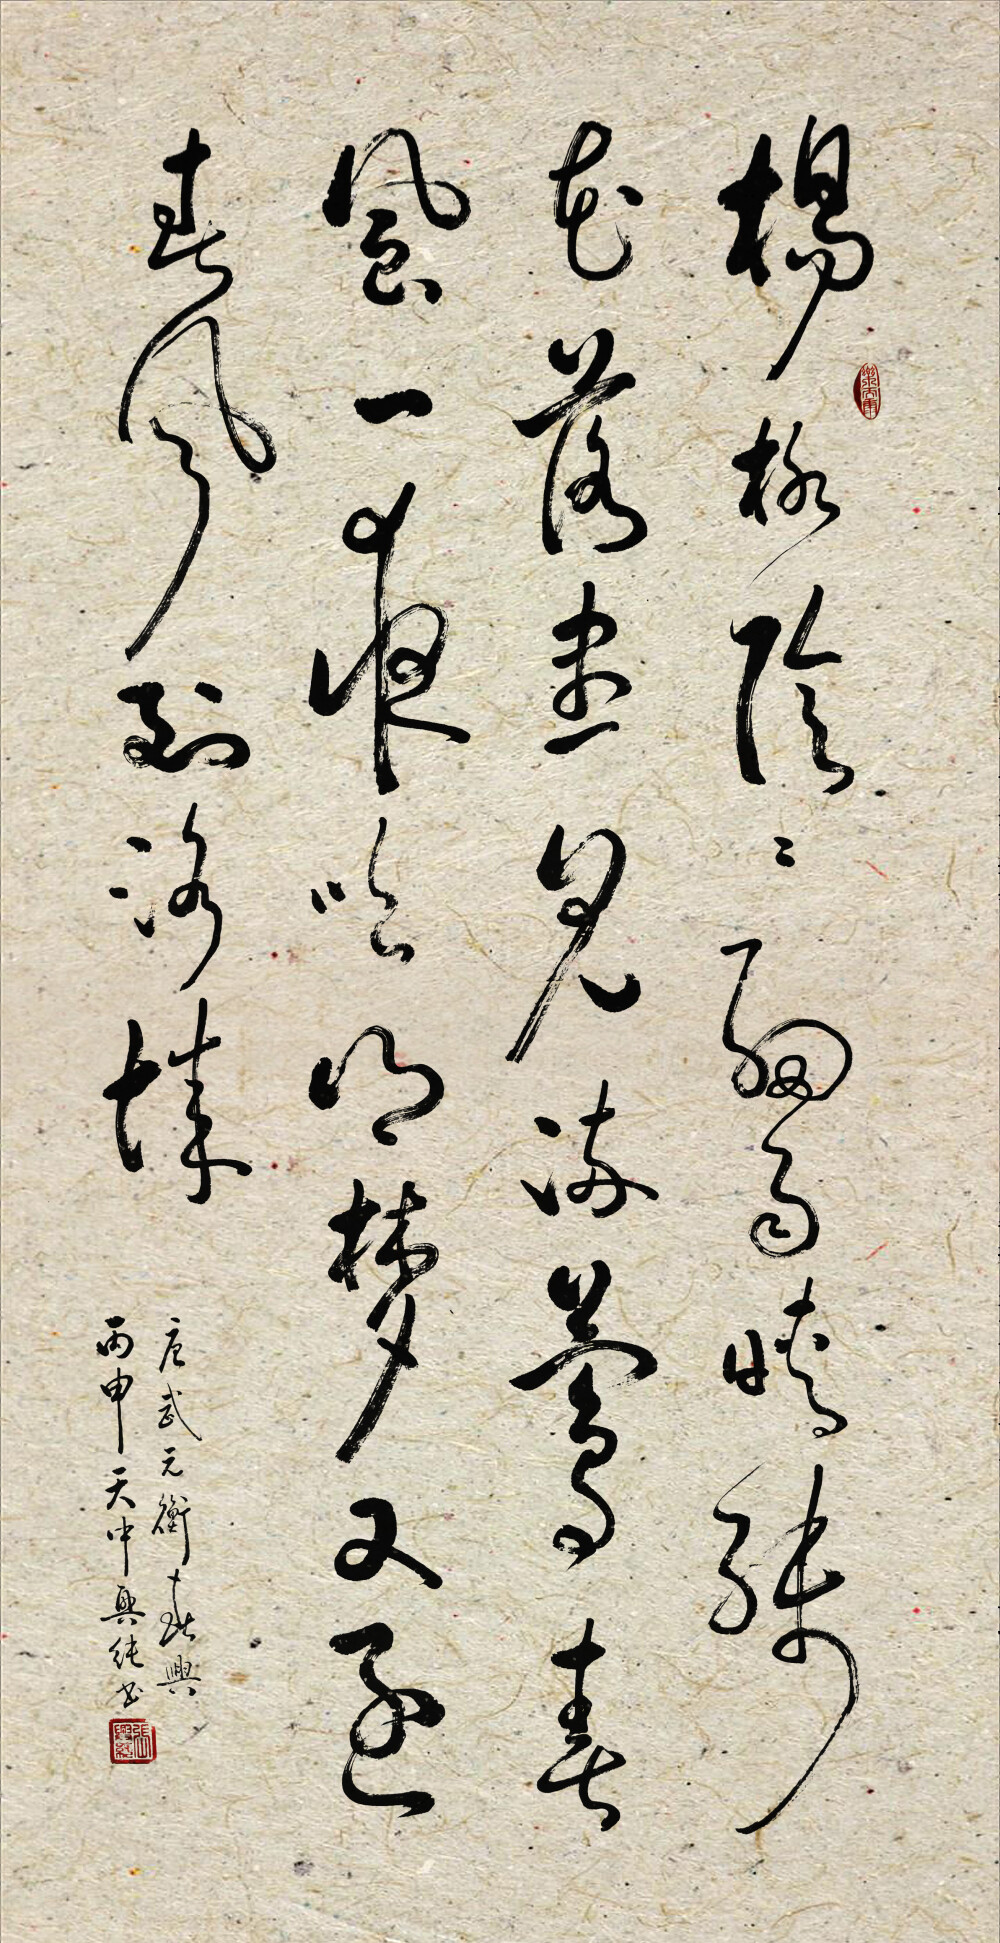 楊柳陰〻細雨晴殘
花落盡見流鶯春
風一夜吹鄉梦又逐
春風到洛城
唐武元衡春興
丙申天中興純書